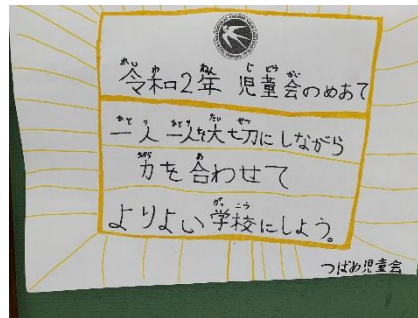 令和2年 児童会のめあて
一人一人を大切にしながら
力を合わせて
よりよい学校にしよう。
つばめ児童会